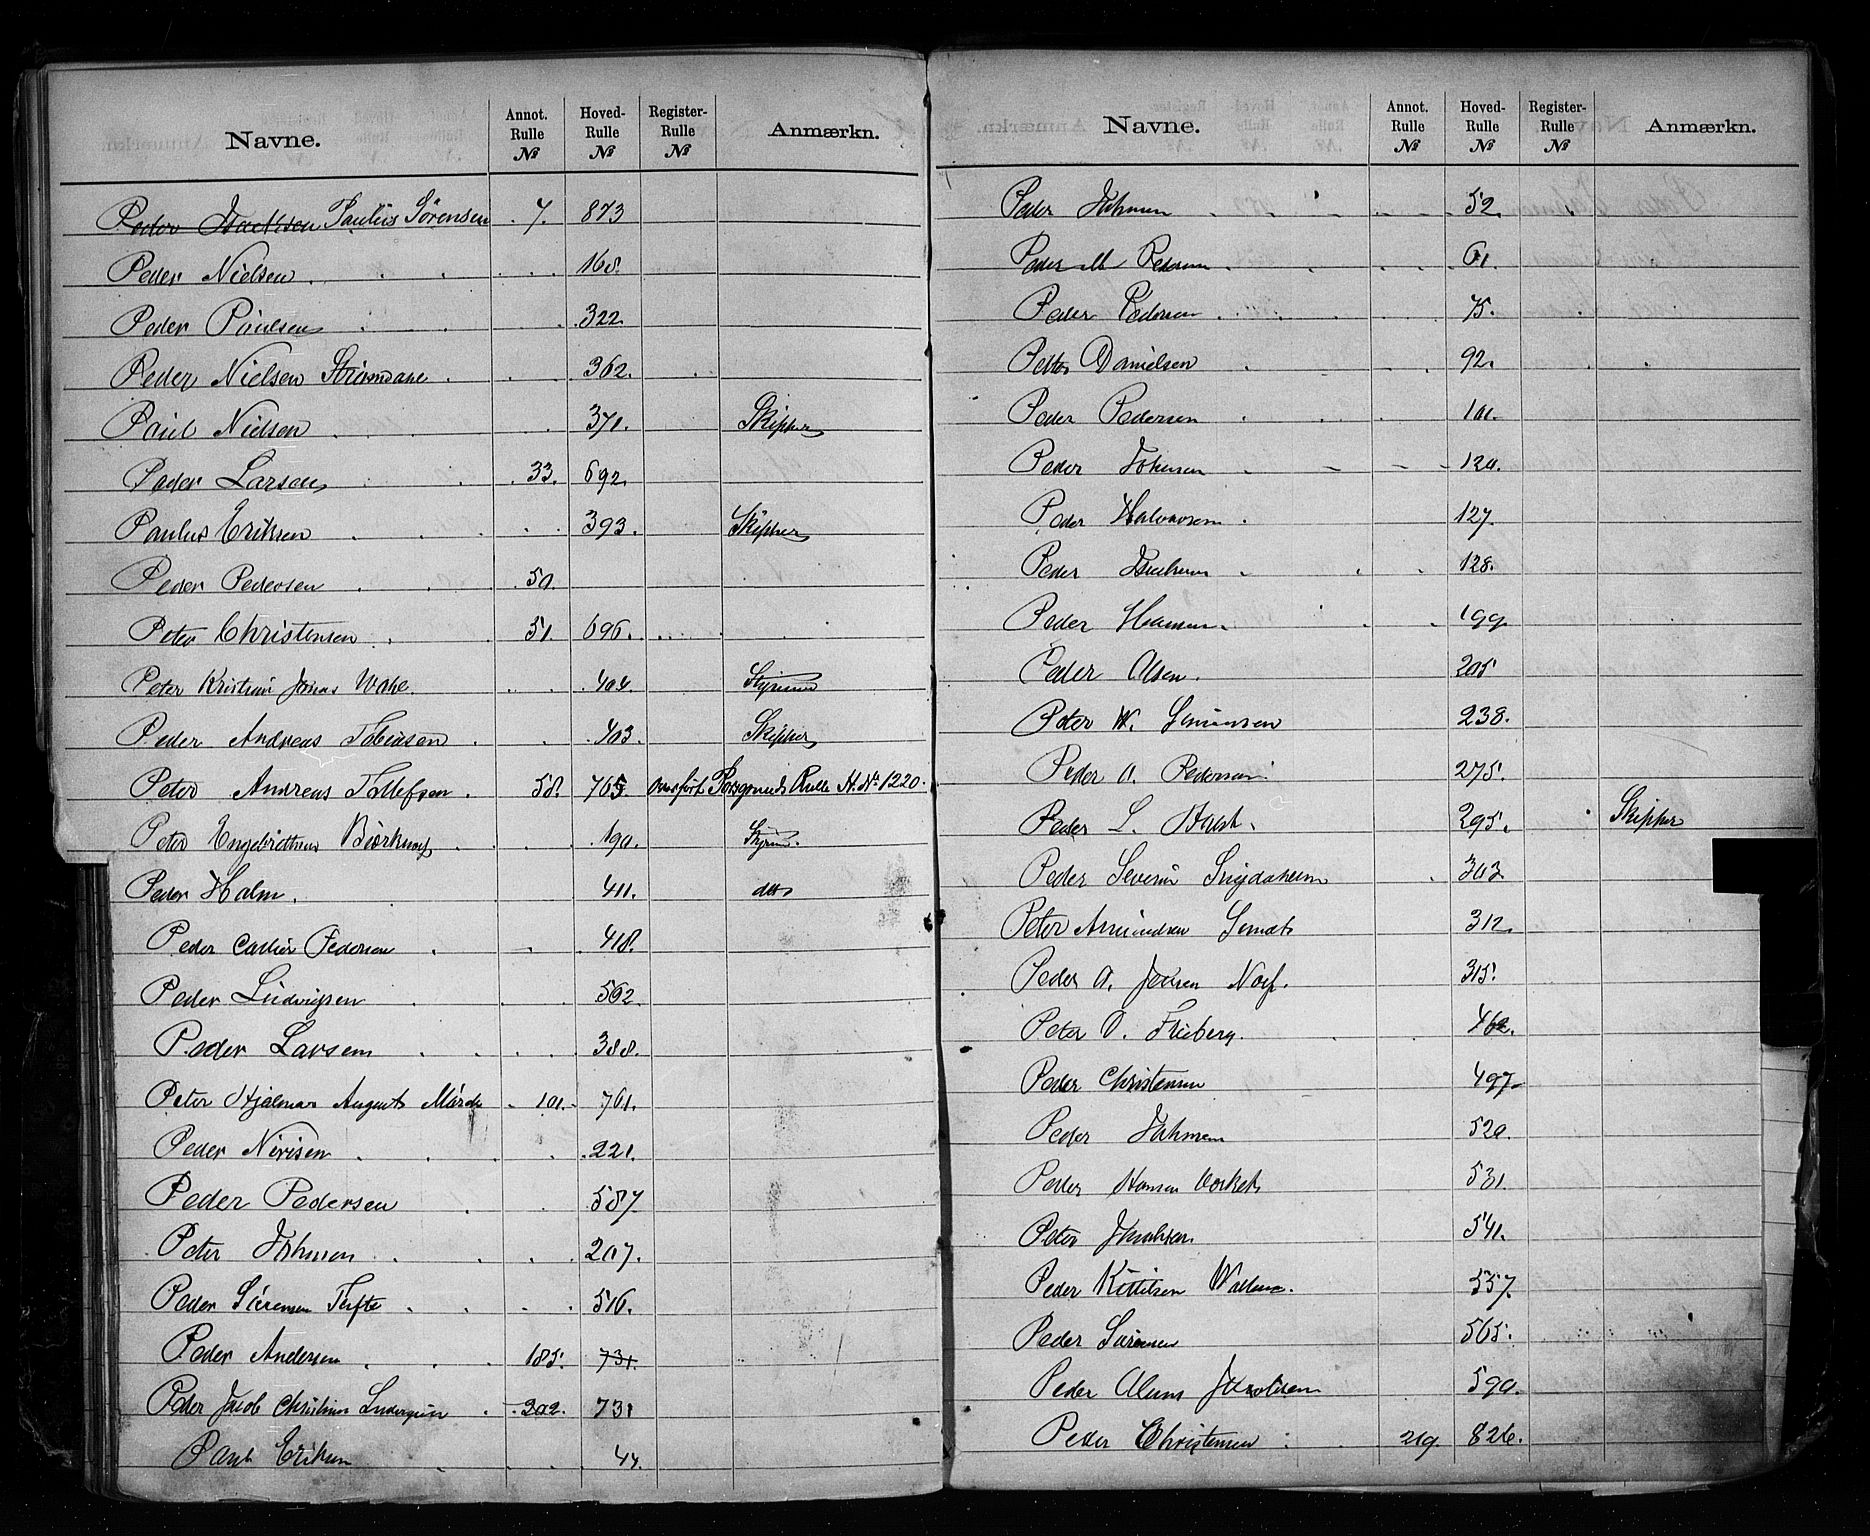 Navne. Annot. Rulle № Hoved-Rulle № Register-Rulle № Anmærkn.
Peder Isacksen Paulus Sørensen 7. 873
Peder Nielsen 168.
Peder Paulsen 322.
Peder Nielsen 362.
Paul Nielsen 371. Skipper
Peder Larsen 33. 692.
Paulus Eriksen 393. Skipper
Peder Pedersen 50.
Peter Christensen 51. 696.
Peter Kristian Jonas Wahl 404. Styrmd
Peder Andreas Tobiassen 403. Skipper
Peter Andreas Tollefsen 58. 765. overført Porsgrunds Rulle H. № 1220.
Peter Engebrethsen 190. Styrmd.
Peder Holm. 411. dtt
Peder Carlius Pedersen 418.
Peder Ludvigsen 562.
Peder Larsen 388.
Peter Hjalmar August 101. 761.
Peder Nirisen 221.
Peder Pedersen 587.
Peter Johnsen 207.
Peder Sørensen Tufte 516.
Peder Andersen 185. 731.
Peder Jacob Christian Ludvigsen 202. 731
Paul Eriksen 44.
Navne. Annot. Rulle № Hoved-Rulle № Register-Rulle № Anmærkn.
Peder Johnsen 52.
Peder M Pedersen 61.
Peder Pedersen 75.
Petter Danielsen 92.
Peder Pedersen 101.
Peder Johnsen 120.
Peder Halvorsen 127.
Peder 128.
Peder Hansen 199.
Peder Olsen. 205
Peter W. Simonsen 238.
Peder A. Pedersen 275.
Peder L. 295. Skipper
Peder Severin 303
Peter Amundsen 312.
Peder A. Jensen 315.
Peter O. Frieberg. 462.
Peder Christensen 497.
Peder Johnsen 520.
Peder Hansen 531.
Peter Jacobsen 541.
Peder Kittilsen 557.
Peder Sørensen 565.
Peder 590.
Peder Christensen 219. 826.